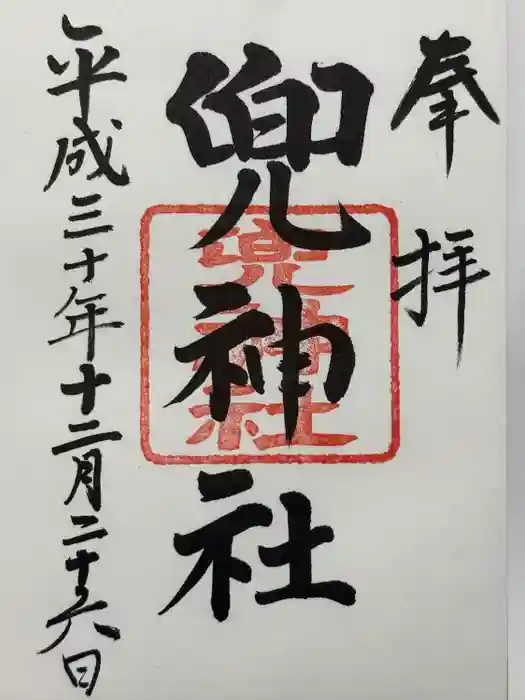 奉拝
兜神社
兜神社
平成三十年十二月二十六日